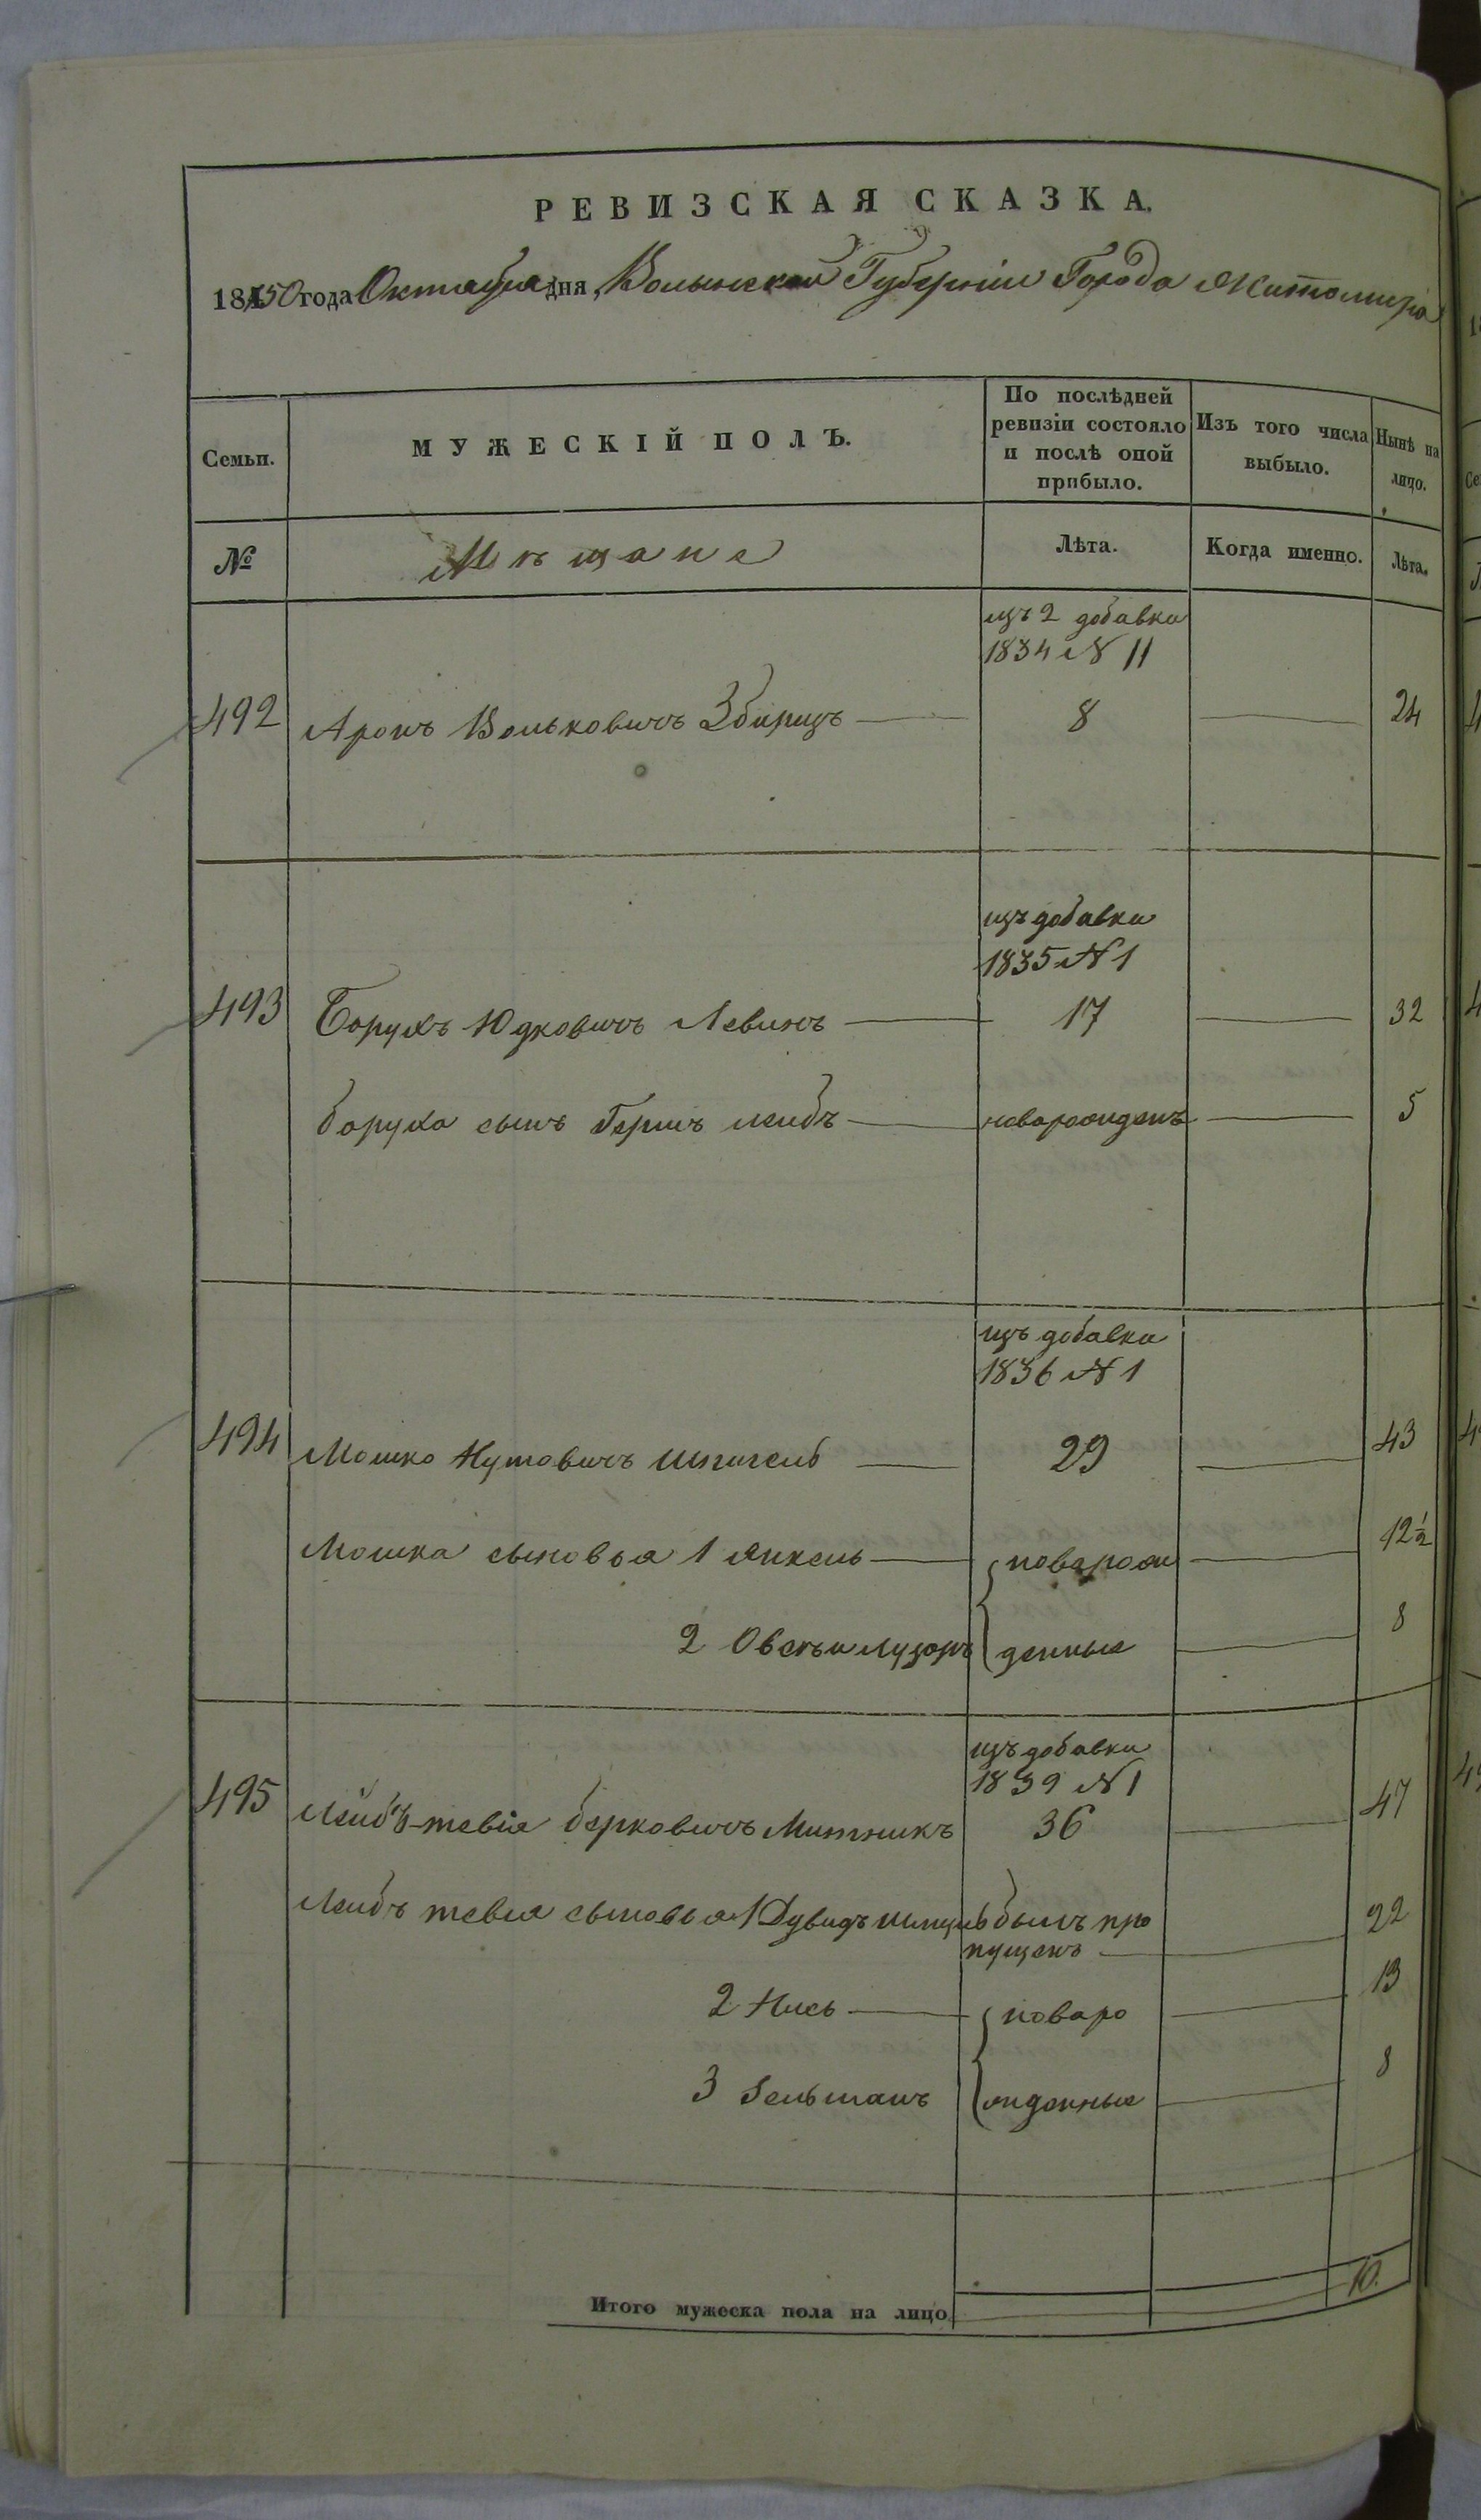 РЕВИЗСКАЯ СКАЗКА.
1850 года Октября дня, Волынской Губерніи Города Житомира
Семьи.
МУЖЕСКІЙ ПОЛЪ.
По послѣдней ревизіи состояло и послѣ оной прибыло.
Изъ того числа выбыло.
Нынѣ на лицо.
№
Мѣщане
Лѣта.
Когда именно.
Лѣта.
изъ 2 добавки
1834 N 11
492 Аронъ Вольковичъ Збирицъ 8 24
изъ добавки
1835 N 1
493 Борухъ Юдковичъ Левинъ 17 32
Боруха сынъ Гершъ лейбъ новорожденъ 5
изъ добавки
1836 N 1
494 Мошко Нутовичъ 29 43
Мошка сыновья 1 Янкель новорож 12 1/2
2 денные 8
изъ добавки
1839 N 1
495 Лейбъ-тевія Берковичъ Митникъ 36 47
Лейбъ тевія сыновья 1 Дувидъ былъ про 22
пущенъ
2 Нись новоро 13
3 Зельманъ жденные 8
Итого мужеска пола на лицо 10.